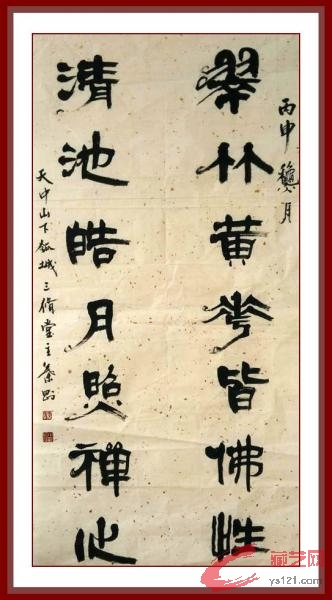 丙申龝月
翠竹黄花皆佛性
清池皓月照禪心
天中山下瓠城三脩堂主秦
藏艺网
ys121.com